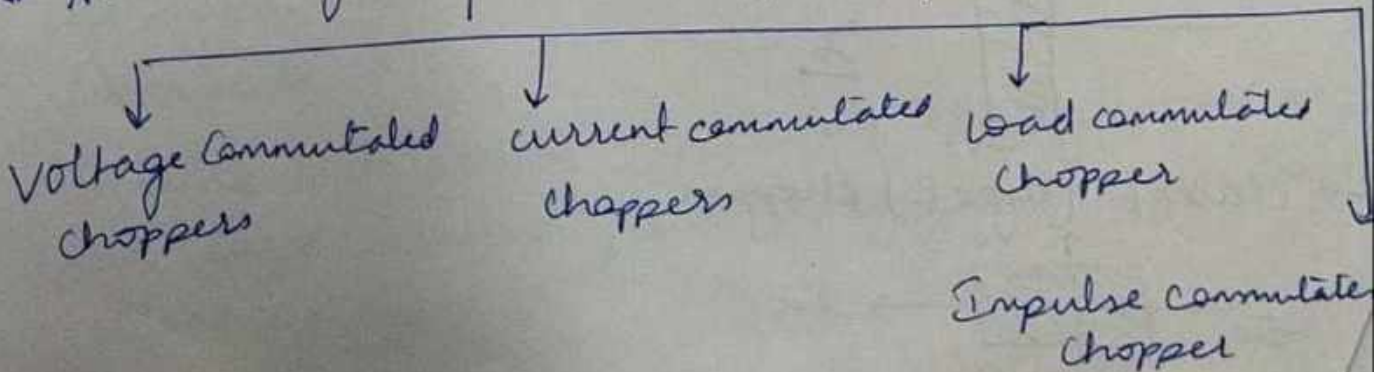 Voltage Commutated
choppers
current commutated
choppers
Load commutated
chopper
Impulse commutate
chopper